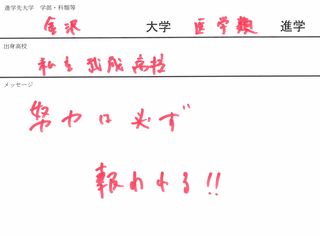 進学先大学 学部・科類等
金沢 大学 医学類 進学
出身高校
私立 武成 高校
メッセージ
努力は必ず
報われる!!